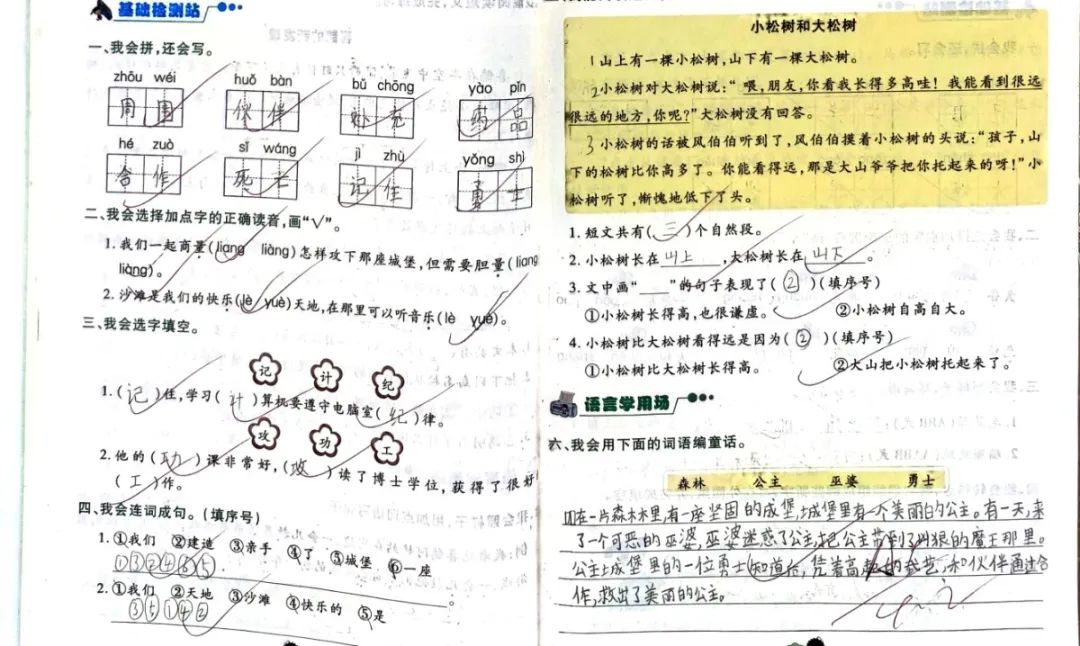 基础检测站
一、我会拼,还会写。
zhōu wéi huǒ bàn bǔ chōng yào pǐn
周围 伙伴 补充 药品
hé zuò sǐ wáng jì zhù yǒng shì
合作 死亡 记住 勇士
二、我会选择加点字的正确读音,画“√”。
1.我们一起商量(liang liàng)怎样攻下那座城堡,但需要胆量(liang
liàng)。
2.沙滩是我们的快乐(lè yuè)天地,在那里可以听音乐(lè yuè)。
三、我会选字填空。
记 计 纪
1.(记)住,学习(计)算机要遵守电脑室(纪)律。
攻 功 工
2.他的(功)课非常好,(攻)读了博士学位,获得了很好
(工)作。
四、我会连词成句。(填序号)
1.①我们 ②建造 ③亲手 ④了 ⑤城堡 ⑥一座
①③②④⑥⑤。
2.①我们 ②天地 ③沙滩 ④快乐的 ⑤是
③⑤①④②。
小松树和大松树
1山上有一棵小松树,山下有一棵大松树。
2小松树对大松树说:“喂,朋友,你看我长得多高哇!我能看到很远
很远的地方,你呢?”大松树没有回答。
3小松树的话被风伯伯听到了,风伯伯摸着小松树的头说:“孩子,山
下的松树比你高多了。你能看得远,那是大山爷爷把你托起来的呀!”小
松树听了,惭愧地低下了头。
1.短文共有(三)个自然段。
2.小松树长在山上,大松树长在山下。
3.文中画“____”的句子表现了(②)(填序号)
①小松树长得高,也很谦虚。 ②小松树自高自大。
4.小松树比大松树看得远是因为(②)(填序号)
①小松树比大松树长得高。 ②大山把小松树托起来了。
语言学用场
六、我会用下面的词语编童话。
森林 公主 巫婆 勇士
在一片森林里,有一座坚固的城堡,城堡里有一个美丽的公主。有一天,来
了一个可恶的巫婆,巫婆迷惑了公主,把公主带到了凶狠的魔王那里。
公主城堡里的一位勇士知道后,凭着高超的技艺,和伙伴通过合
作,救出了美丽的公主。